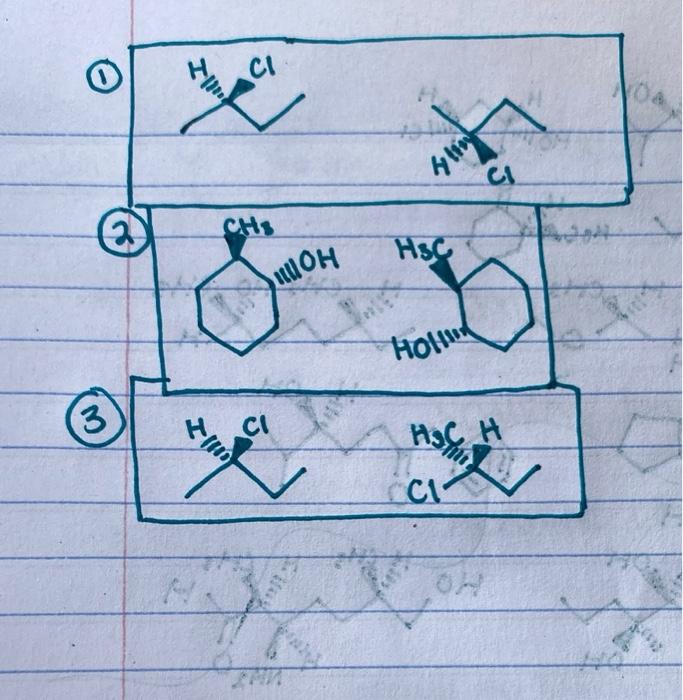 1 H Cl
H Cl
2 CH3 OH H3C
HO
3 H Cl H3C H
Cl